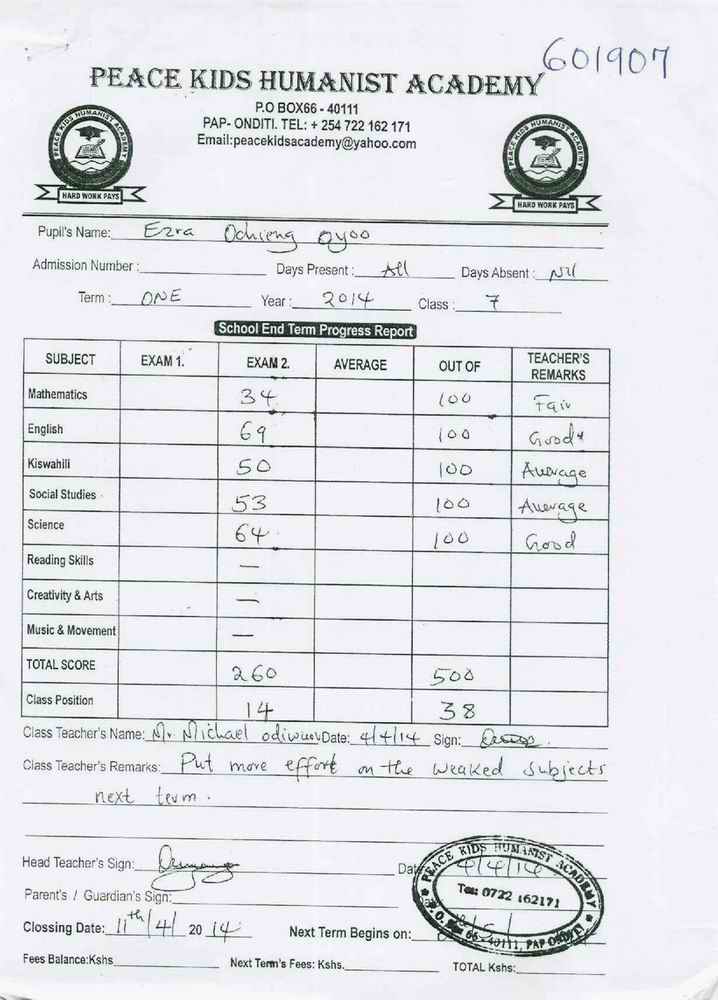 601907
PEACE KIDS HUMANIST ACADEMY
P.O BOX66 - 40111
PAP- ONDITI. TEL: + 254 722 162 171
Email:peacekidsacademy@yahoo.com
PEACE KIDS HUMANIST ACADEMY
HARD WORK PAYS
PEACE KIDS HUMANIST ACADEMY
HARD WORK PAYS
Pupil's Name: Ezra Ochieng Oyoo
Admission Number : Days Present : All Days Absent : Nil
Term : ONE Year : 2014 Class : 7
School End Term Progress Report
SUBJECT EXAM 1. EXAM 2. AVERAGE OUT OF TEACHER'S REMARKS
Mathematics 34 100 Fair
English 69 100 Good
Kiswahili 50 100 Average
Social Studies 53 100 Average
Science 64 100 Good
Reading Skills —
Creativity & Arts —
Music & Movement —
TOTAL SCORE 260 500
Class Position 14 38
Class Teacher's Name: Mr Michael Date: 4/4/14 Sign:
Class Teacher's Remarks: Put more effort on the weaked subjects
next term.
Head Teacher's Sign: Date 4/4/14
Parent's / Guardian's Sign:
Clossing Date: 11th/4/ 20 14 Next Term Begins on:
Fees Balance:Kshs. Next Term's Fees: Kshs. TOTAL Kshs:
PEACE KIDS HUMANIST ACADEMY
TEL: 0722 162171
P.O. Box 66 - 40111, PAP ONDITI